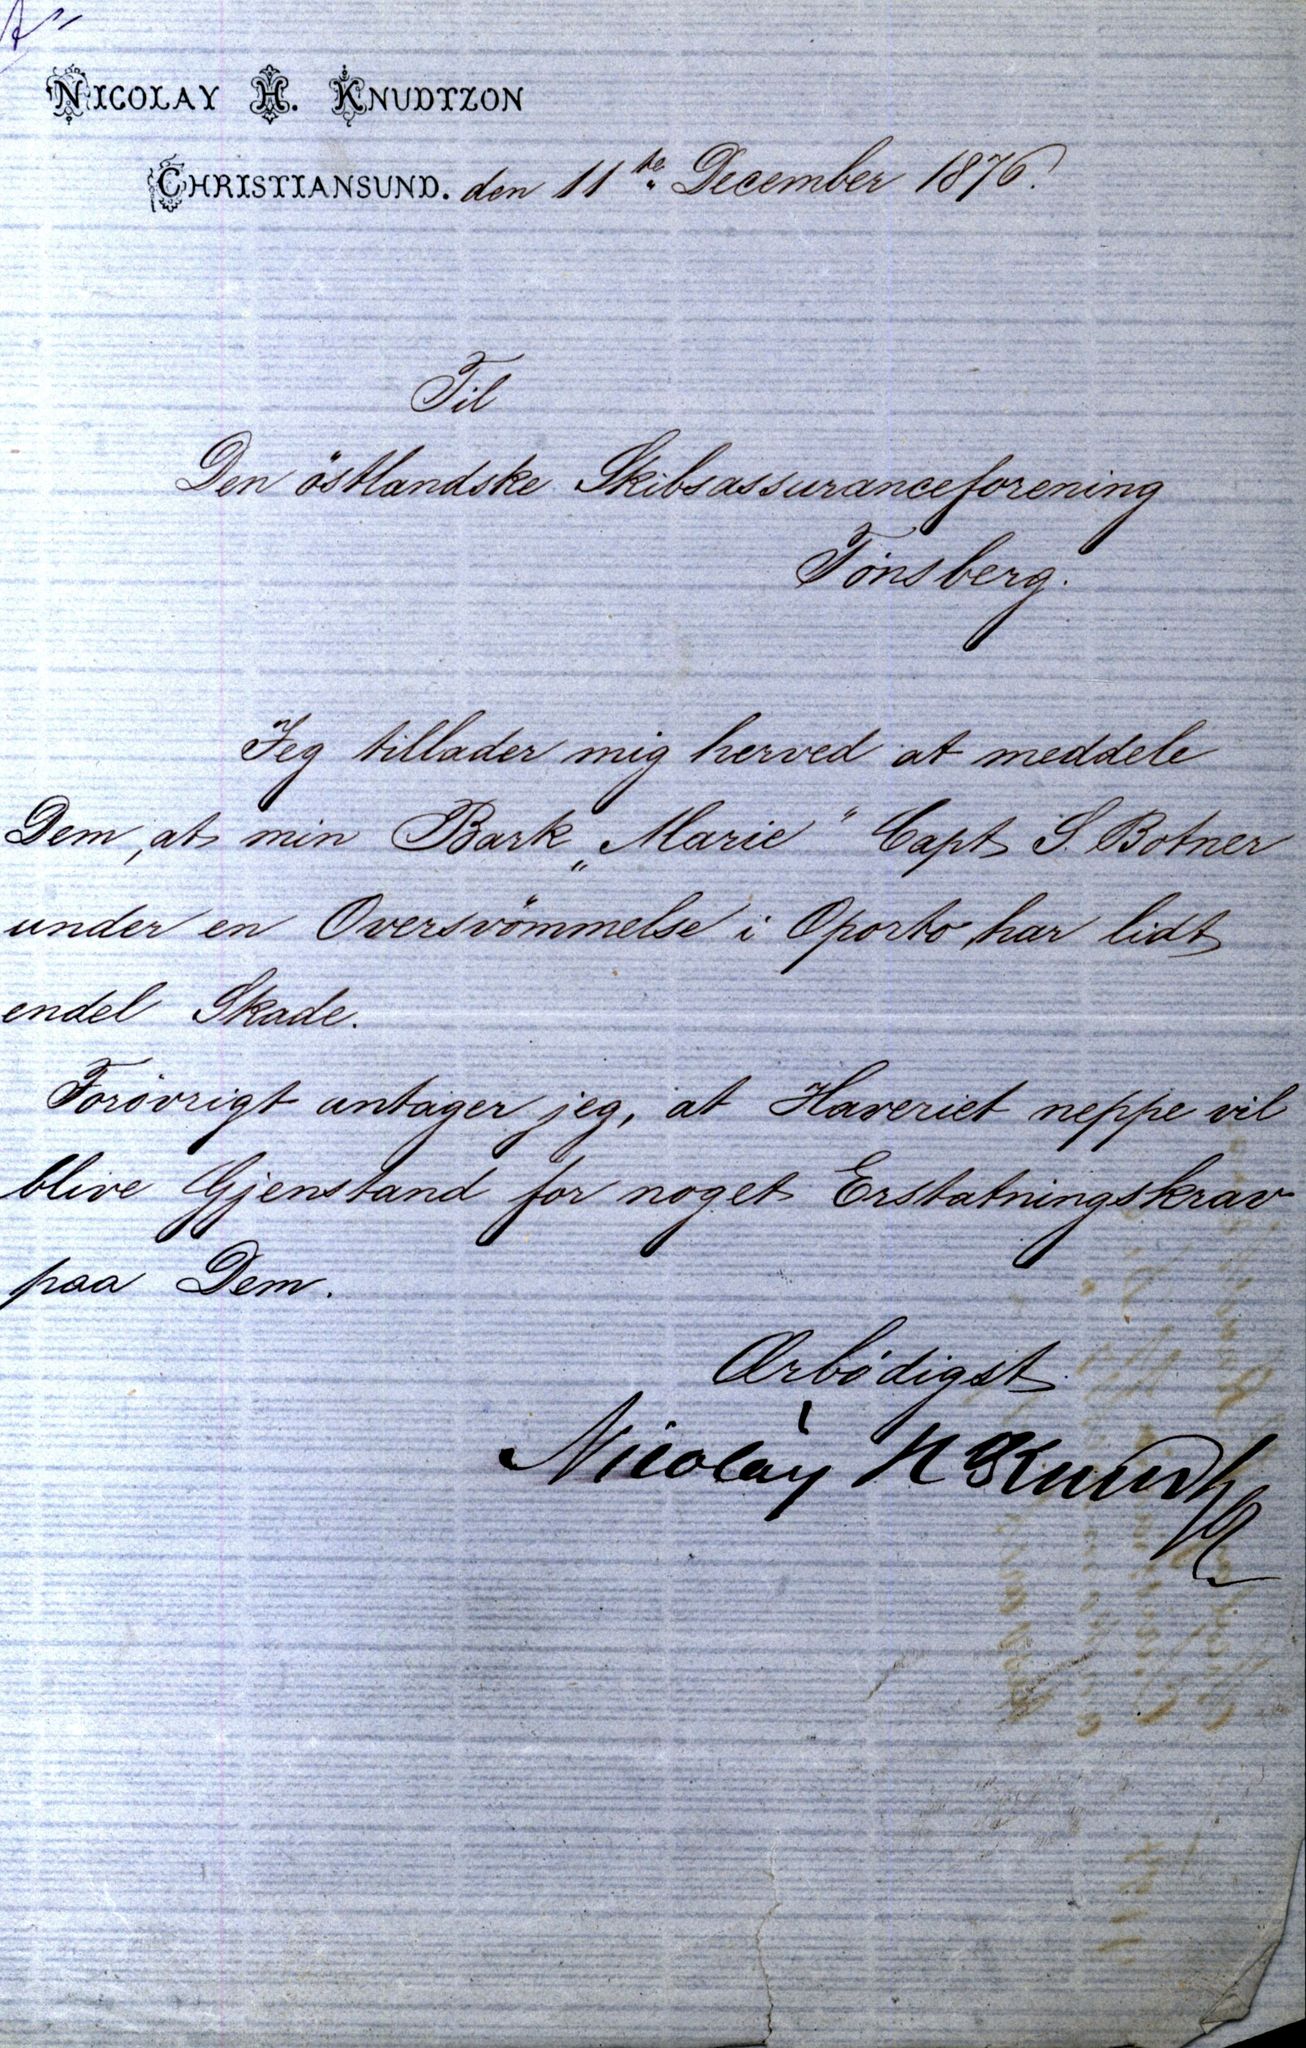 NICOLAY H. KNUDTZON
CHRISTIANSUND. den 11te December 1876.
Til
Den östlandske Skibsassuranceforening
Tönsberg.
Jeg tillader mig herved at meddele
Dem, at min Bark „Marie" Capt S. Botner
under en Oversvömmelse i Oporto, har lidt
endel Skade.
Forövrigt antager jeg, at Haveriet neppe vil
blive Gjenstand for noget Erstatningskrav
paa Dem.
Ærbödigst
Nicolay H Knudtzon